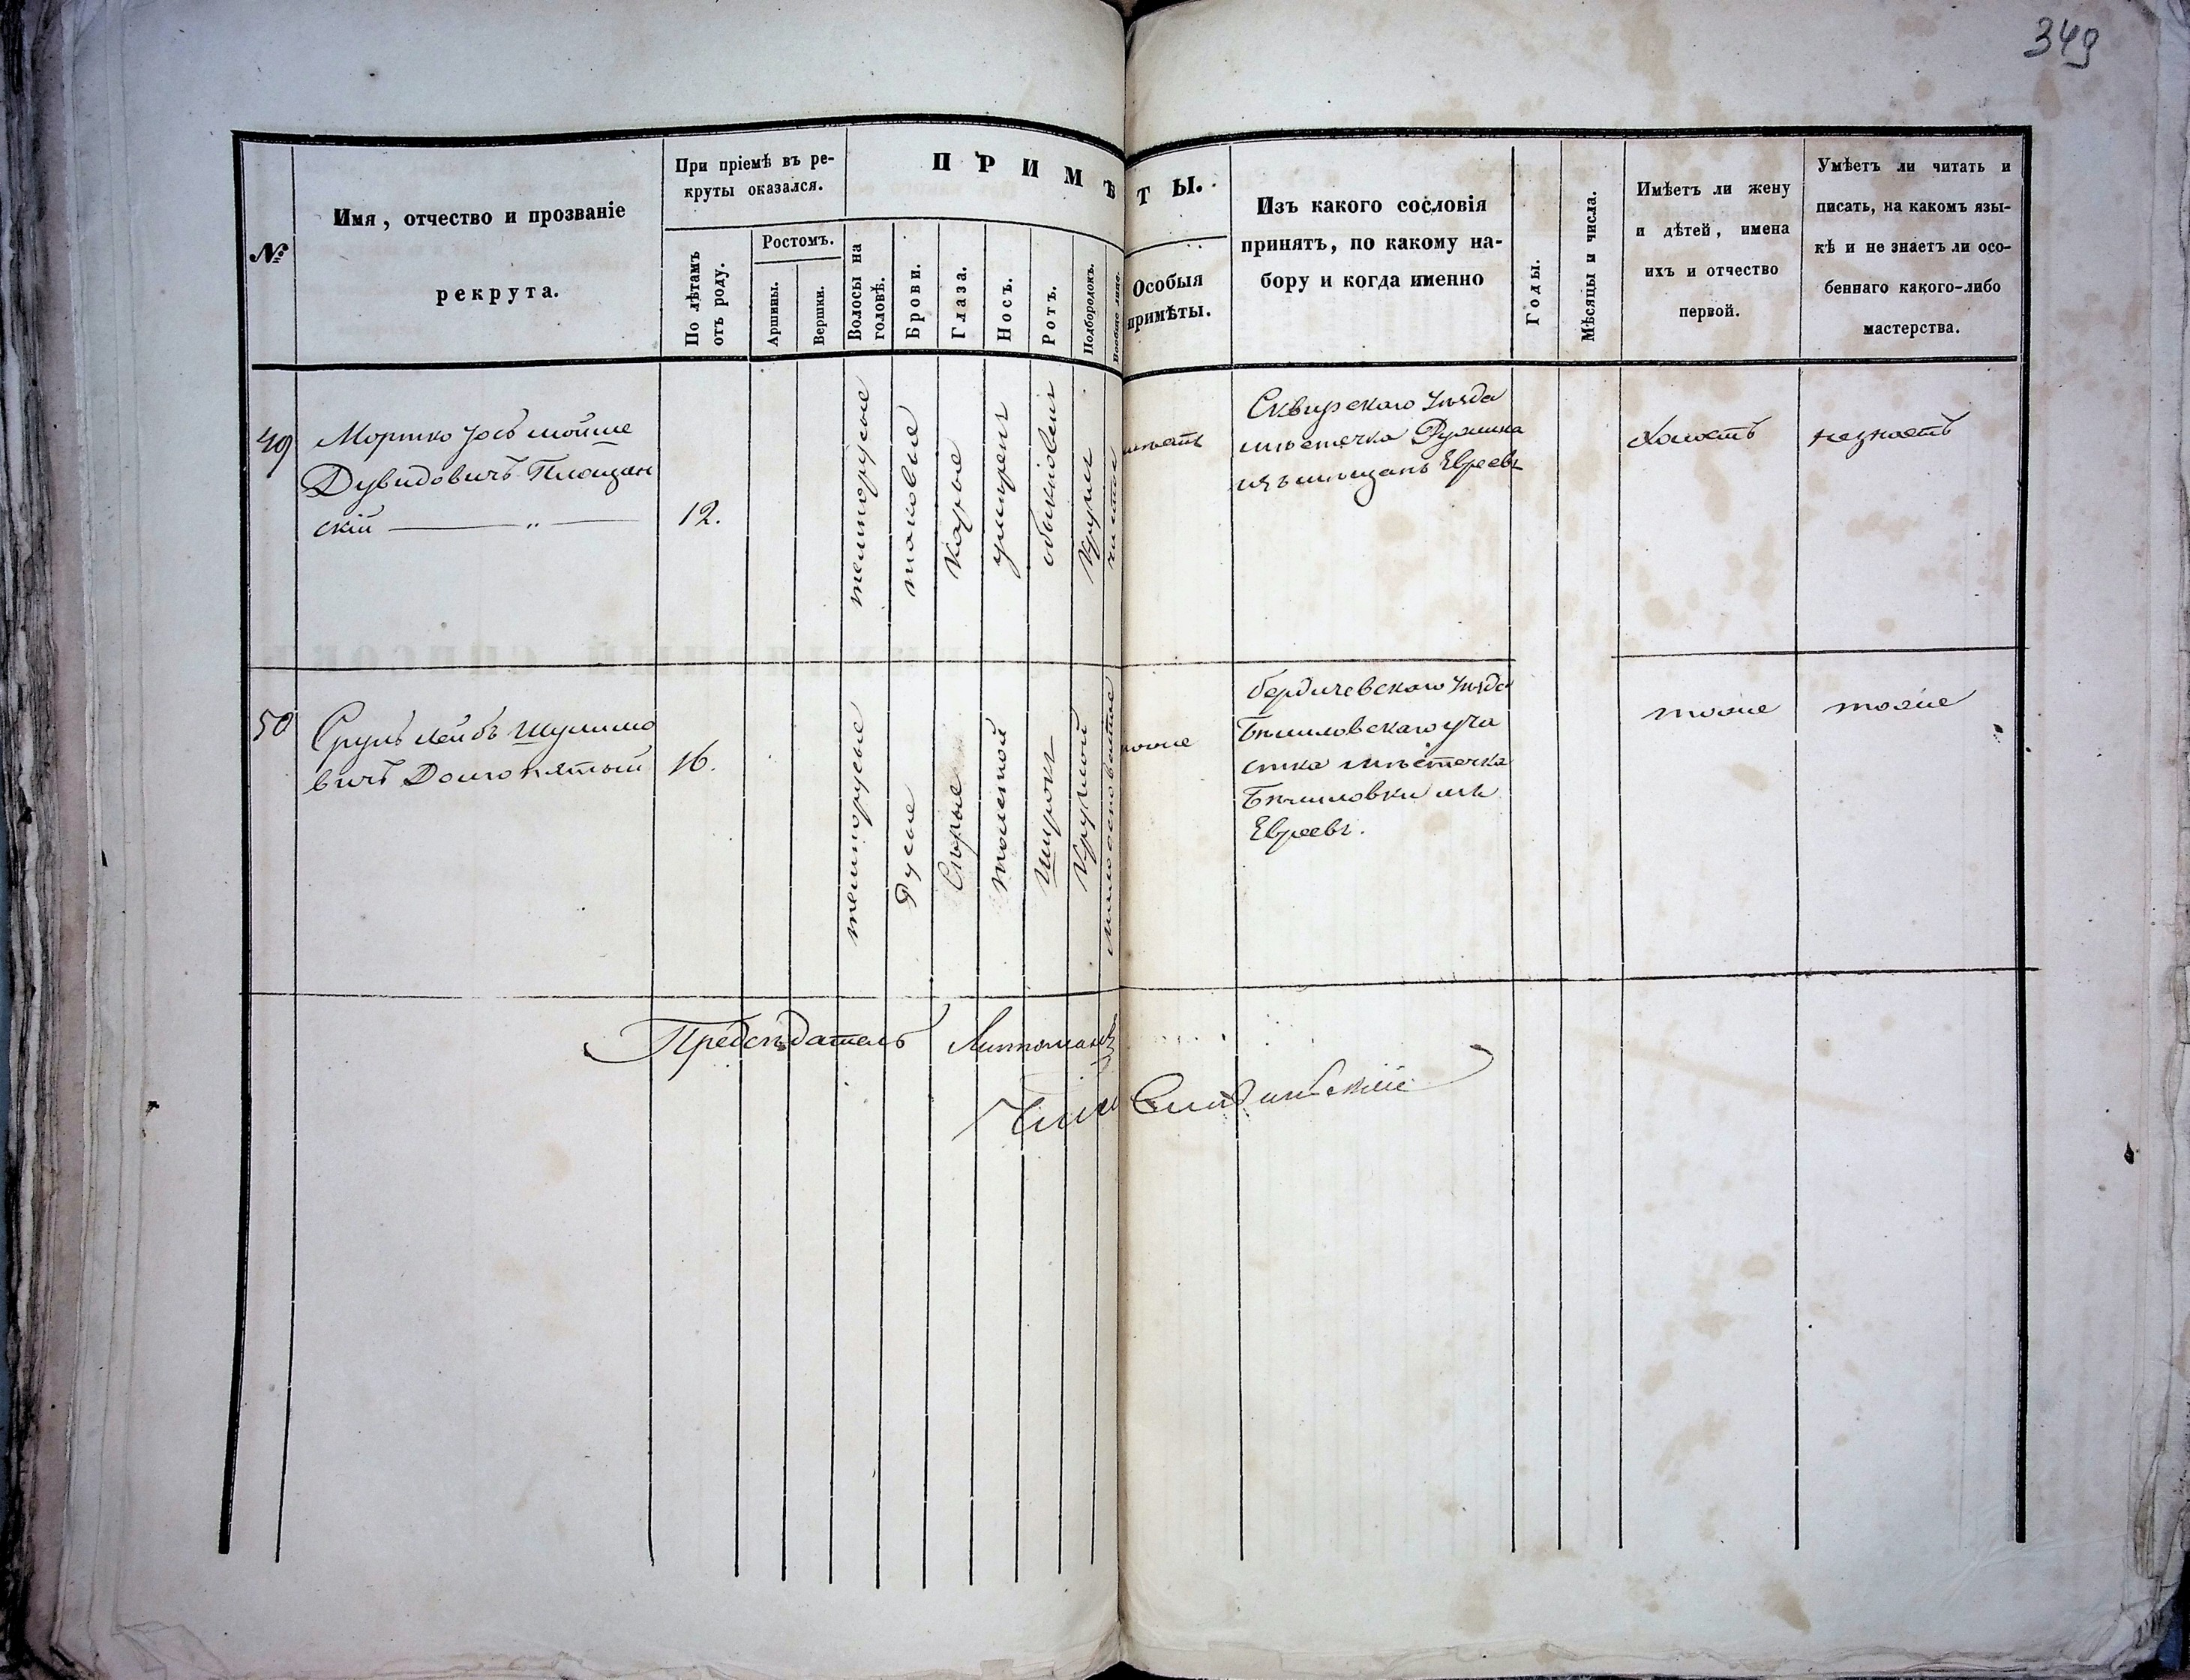 349
№
Имя, отчество и прозваніе
рекрута.
При пріемѣ въ ре-
круты оказался.
По лѣтамъ
отъ роду.
Ростомъ.
Аршины.
Вершки.
ПРИМѢТЫ.
Волосы на
головѣ.
Брови.
Глаза.
Носъ.
Ротъ.
Подбородокъ.
Вообще лице.
Особыя
примѣты.
Изъ какого сословія
принятъ, по какому на-
бору и когда именно
Годы.
Мѣсяцы и числа.
Имѣетъ ли жену
и дѣтей, имена
ихъ и отчество
первой.
Умѣетъ ли читать и
писать, на какомъ язы-
кѣ и не знаетъ ли осо-
беннаго какого-либо
мастерства.
49
Мортко Іосъ мойше
Дувидовичъ Площан
скій
12.
темнорусые
таковые
Карые
умѣрен
обыкновен
Кругл
чистое
Сквирскаго Уѣзда
мѣстечка Ружина
изъ мѣщанъ Евреевъ
Холостъ
незнаетъ
50
Срулъ лейбъ Шулимо
вичъ Долгопятый
16.
темнорусые
Русые
Сѣрые
толстой
Широк
Круглой
Бердичевскаго Уѣзда
Бѣлиловскаго уча
стка мѣстечка
Бѣлиловки изъ
Евреевъ.
тоже
тоже
Предсѣдатель